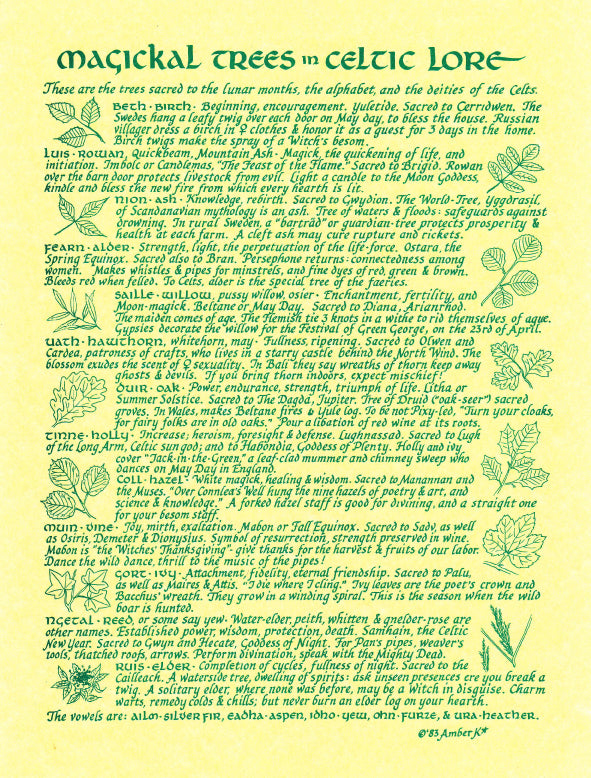 Magickal Trees in Celtic Lore
These are the trees sacred to the lunar months, the alphabet, and the deities of the Celts.
Beth · Birch · Beginning, encouragement. Yuletide. Sacred to Cerridwen. The
Swedes hang a leafy twig over each door on May day, to bless the house. Russian
villager dress a birch in ♀ clothes & honor it as a guest for 3 days in the home.
Birch twigs make the spray of a Witch's besom.
Luis · Rowan, Quickbeam, Mountain Ash · Magick, the quickening of life, and
initiation. Imbolc or Candlemas, "The Feast of the Flame." Sacred to Brigid. Rowan
over the barn door protects livestock from evil. Light a candle to the Moon Goddess,
kindle and bless the new fire from which every hearth is lit.
Nion · Ash · Knowledge, rebirth. Sacred to Gwydion. The World-Tree, Yggdrasil,
of Scandanavian mythology is an ash. Tree of waters & floods: safeguards against
drowning. In rural Sweden, a "barträd" or guardian-tree protects prosperity &
health at each farm. A cleft ash may cure rupture and rickets.
Fearn · Alder · Strength, light, the perpetuation of the life-force. Ostara, the
Spring Equinox. Sacred also to Bran. Persephone returns: connectedness among
women. Makes whistles & pipes for minstrels, and fine dyes of red, green & brown.
Bleeds red when felled. To Celts, alder is the special tree of the faeries.
Saille · Willow, pussy willow, osier · Enchantment, fertility, and
Moon-magick. Beltane or May Day. Sacred to Diana, Arianrhod.
The maiden comes of age. The Flemish tie 3 knots in a withe to rid themselves of ague.
Gypsies decorate the willow for the Festival of Green George, on the 23rd of April.
Uath · Hawthorn, whitehorn, may · Fullness, ripening. Sacred to Olwen and
Cardea, patroness of crafts, who lives in a starry castle behind the North Wind. The
blossom exudes the scent of ♀ sexuality. In Bali they say wreaths of thorn keep away
ghosts & devils. If you bring thorn indoors, expect mischief!
Duir · Oak · Power, endurance, strength, triumph of life. Litha or
Summer Solstice. Sacred to The Dagda, Jupiter. Tree of Druid ("oak-seer") sacred
groves. In Wales, makes Beltane fires & Yule log. To be not Pixy-led, "Turn your cloaks,
for fairy folks are in old oaks." Pour a libation of red wine at its roots.
Tinne · Holly · Increase; heroism, foresight & defense. Lughnassad. Sacred to Lugh
of the Long Arm, Celtic sun god; and to Habondia, Goddess of Plenty. Holly and ivy
cover "Jack-in-the-Green," a leaf-clad mummer and chimney sweep who
dances on May Day in England.
Coll · Hazel · White magick, healing & wisdom. Sacred to Manannan and
the Muses. "Over Connlea's Well hung the nine hazels of poetry & art, and
science & knowledge." A forked hazel staff is good for divining, and a straight one
for your besom staff.
Muin · Vine · Joy, mirth, exaltation. Mabon or Fall Equinox. Sacred to Sadv, as well
as Osiris, Demeter & Dionysius. Symbol of resurrection, strength preserved in wine.
Mabon is "the Witches' Thanksgiving" · give thanks for the harvest & fruits of our labor.
Dance the wild dance, thrill to the music of the pipes!
Gort · Ivy · Attachment, fidelity, eternal friendship. Sacred to Palu,
as well as Maires & Attis. "I die where I cling." Ivy leaves are the poet's crown and
Bacchus' wreath. They grow in a winding spiral. This is the season when the wild
boar is hunted.
Ngetal · Reed, or some say yew. Water-elder, peith, whitten & guelder-rose are
other names. Established power, wisdom, protection, death. Samhain, the Celtic
New Year. Sacred to Gwyn and Hecate, Goddess of Night. For Pan's pipes, weaver's
tools, thatched roofs, arrows. Perform divination, speak with the Mighty Dead.
Ruis · Elder · Completion of cycles, fullness of night. Sacred to the
Cailleach. A waterside tree, dwelling of spirits: ask unseen presences ere you break a
twig. A solitary elder, where none was before, may be a Witch in disguise. Charm
warts, remedy colds & chills; but never burn an elder log on your hearth.
The vowels are: Ailm · Silver Fir, Eadha · Aspen, Idho · Yew, Ohn · Furze, & Ura · Heather.
©'83 Amber K*